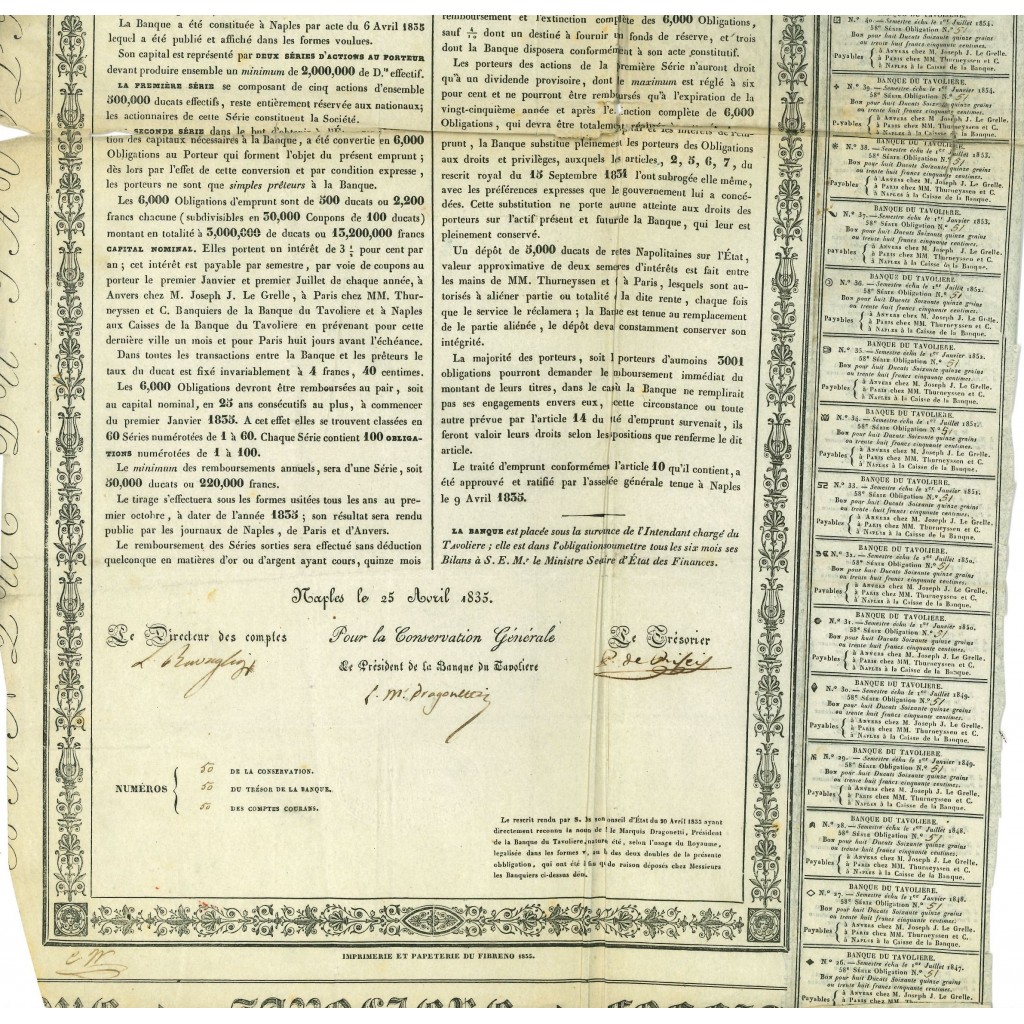 La Banque a été constituée à Naples par acte du 6 Avril 1835
lequel a été publié et affiché dans les formes voulues.
Son capital est représenté par DEUX SÉRIES D'ACTIONS AU PORTEUR
devant produire ensemble un minimum de 2,000,000 de D.ᵗˢ effectif.
LA PREMIÈRE SÉRIE se composant de cinq actions d'ensemble
500,000 ducats effectifs, reste entièrement réservée aux nationaux;
les actionnaires de cette Série constituent la Société.
SECONDE SÉRIE dans le but
tion des capitaux nécessaires à la Banque, a été convertie en 6,000
Obligations au Porteur qui forment l'objet du présent emprunt;
dès lors par l'effet de cette conversion et par condition expresse;
les porteurs ne sont que simples prêteurs à la Banque.
Les 6,000 Obligations d'emprunt sont de 500 ducats ou 2,200
francs chacune (subdivisibles en 30,000 Coupons de 100 ducats)
montant en totalité à 3,000,000 de ducats ou 13,200,000 francs
CAPITAL NOMINAL. Elles portent un intérêt de 3 ½ pour cent par
an; cet intérêt est payable par semestre, par voie de coupons au
porteur le premier Janvier et premier Juillet de chaque année, à
Anvers chez M. Joseph J. Le Grelle, à Paris chez MM. Thur-
neyssen et C. Banquiers de la Banque du Tavoliere et à Naples
aux Caisses de la Banque du Tavoliere en prévenant pour cette
dernière ville un mois et pour Paris huit jours avant l'échéance.
Dans toutes les transactions entre la Banque et les prêteurs le
taux du ducat est fixé invariablement à 4 francs, 40 centimes.
Les 6,000 Obligations devront être remboursées au pair, soit
au capital nominal, en 25 ans consécutifs au plus, à commencer
du premier Janvier 1835. A cet effet elles se trouvent classées en
60 Séries numérotées de 1 à 60. Chaque Série contient 100 OBLIGA-
TIONS numérotées de 1 à 100.
Le minimum des remboursements annuels, sera d'une Série, soit
50,000 ducats ou 220,000 francs.
Le tirage s'effectuera sous les formes usitées tous les ans au pre-
mier octobre, à dater de l'année 1835; son résultat sera rendu
public par les journaux de Naples, de Paris et d'Anvers.
Le remboursement des Séries sorties sera effectué sans déduction
quelconque en matières d'or ou d'argent ayant cours, quinze mois
remboursement et l'extinction complète des 6,000 Obligations,
sauf 1/10 dont un destiné à fournir un fonds de réserve, et trois
dont la Banque disposera conformément à son acte constitutif.
Les porteurs des actions de la première Série n'auront droit
qu'à un dividende provisoire, dont le maximum est réglé à six
pour cent et ne pourront être remboursés qu'à l'expiration de la
vingt-cinquième année et après l'extinction complète de 6,000
Obligations, qui devra être totalement
prunt, la Banque substitue pleinement les porteurs des Obligations
aux droits et privilèges, auxquels les articles, 2, 5, 6, 7, du
rescrit royal du 15 Septembre 1831 l'ont subrogée elle même,
avec les préférences expresses que le gouvernement lui a concé-
dées. Cette substitution ne porte aucune atteinte aux droits des
porteurs sur l'actif présent et futur de la Banque, qui leur est
pleinement conservé.
Un dépôt de 5,000 ducats de rentes Napolitaines sur l'État,
valeur approximative de deux semestres d'intérêts est fait entre
les mains de MM. Thurneyssen et C. à Paris, lesquels sont au-
torisés à aliéner partie ou totalité de la dite rente, chaque fois
que le service le réclamera; la Banque est tenue au remplacement
de la partie aliénée, le dépôt devant constamment conserver son
intégrité.
La majorité des porteurs, soit porteurs d'aumoins 3001
obligations pourront demander le remboursement immédiat du
montant de leurs titres, dans le cas où la Banque ne remplirait
pas ses engagements envers eux, cette circonstance ou toute
autre prévue par l'article 14 du traité d'emprunt survenait, ils
feront valoir leurs droits selon les dispositions que renferme le dit
article.
Le traité d'emprunt conformément à l'article 10 qu'il contient, a
été approuvé et ratifié par l'assemblée générale tenue à Naples
le 9 Avril 1835.
LA BANQUE est placée sous la surveillance de l'Intendant chargé du
Tavoliere; elle est dans l'obligation de soumettre tous les six mois ses
Bilans à S. E. M.ʳ le Ministre Secrétaire d'État des Finances.
Naples le 25 Avril 1835.
Le Directeur des comptes
Pour la Conservation Générale
Le Trésorier
Le Président de la Banque du Tavoliere
L. M. Dragonetti
NUMÉROS
50 DE LA CONSERVATION.
50 DU TRÉSOR DE LA BANQUE.
50 DES COMPTES COURANS.
Le rescrit rendu par S. M. en son Conseil d'État du 20 Avril 1835 ayant
directement reconnu le nom de le Marquis Dragonetti, Président
de la Banque du Tavoliere, été, selon l'usage du Royaume,
legalisée dans les formes des deux doubles de la présente
obbligation, qui ont été de raison déposés chez Messieurs
les Banquiers ci-dessus dén.
IMPRIMERIE ET PAPETERIE DU FIBRENO 1835.
N.º 40. — Semestre échu le 1ᵉʳ Juillet 1854.
58ᵉ SÉRIE Obligation N.º 51
BON pour huit Ducats Soixante quinze grains
ou trente huit francs cinquante centimes.
Payables { à ANVERS chez M. Joseph J. Le Grelle.
à PARIS chez MM. Thurneyssen et C.
à NAPLES à la Caisse de la Banque.
BANQUE DU TAVOLIERE.
N.º 39. — Semestre échu le 1ᵉʳ Janvier 1854.
58ᵉ SÉRIE Obligation N.º 51
BON pour huit Ducats Soixante quinze grains
ou trente huit francs cinquante centimes.
Payables { à ANVERS chez M. Joseph J. Le Grelle.
à PARIS chez MM. Thurneyssen et C.
à NAPLES à la Caisse de la Banque.
BANQUE DU TAVOLIERE.
N.º 38. — Semestre échu le 1ᵉʳ Juillet 1853.
58ᵉ SÉRIE Obligation N.º 51
BON pour huit Ducats Soixante quinze grains
ou trente huit francs cinquante centimes.
Payables { à ANVERS chez M. Joseph J. Le Grelle.
à PARIS chez MM. Thurneyssen et C.
à NAPLES à la Caisse de la Banque.
BANQUE DU TAVOLIERE.
N.º 37. — Semestre échu le 1ᵉʳ Janvier 1853.
58ᵉ SÉRIE Obligation N.º 51
BON pour huit Ducats Soixante quinze grains
ou trente huit francs cinquante centimes.
Payables { à ANVERS chez M. Joseph J. Le Grelle.
à PARIS chez MM. Thurneyssen et C.
à NAPLES à la Caisse de la Banque.
BANQUE DU TAVOLIERE.
N.º 36. — Semestre échu le 1ᵉʳ Juillet 1852.
58ᵉ SÉRIE Obligation N.º 51
BON pour huit Ducats Soixante quinze grains
ou trente huit francs cinquante centimes.
Payables { à ANVERS chez M. Joseph J. Le Grelle.
à PARIS chez MM. Thurneyssen et C.
à NAPLES à la Caisse de la Banque.
BANQUE DU TAVOLIERE.
N.º 35. — Semestre échu le 1ᵉʳ Janvier 1852.
58ᵉ SÉRIE Obligation N.º 51
BON pour huit Ducats Soixante quinze grains
ou trente huit francs cinquante centimes.
Payables { à ANVERS chez M. Joseph J. Le Grelle.
à PARIS chez MM. Thurneyssen et C.
à NAPLES à la Caisse de la Banque.
BANQUE DU TAVOLIERE.
N.º 34. — Semestre échu le 1ᵉʳ Juillet 1851.
58ᵉ SÉRIE Obligation N.º 51
BON pour huit Ducats Soixante quinze grains
ou trente huit francs cinquante centimes.
Payables { à ANVERS chez M. Joseph J. Le Grelle.
à PARIS chez MM. Thurneyssen et C.
à NAPLES à la Caisse de la Banque.
BANQUE DU TAVOLIERE.
N.º 33. — Semestre échu le 1ᵉʳ Janvier 1851.
58ᵉ SÉRIE Obligation N.º 51
BON pour huit Ducats Soixante quinze grains
ou trente huit francs cinquante centimes.
Payables { à ANVERS chez M. Joseph J. Le Grelle.
à PARIS chez MM. Thurneyssen et C.
à NAPLES à la Caisse de la Banque.
BANQUE DU TAVOLIERE.
N.º 32. — Semestre échu le 1ᵉʳ Juillet 1850.
58ᵉ SÉRIE Obligation N.º 51
BON pour huit Ducats Soixante quinze grains
ou trente huit francs cinquante centimes.
Payables { à ANVERS chez M. Joseph J. Le Grelle.
à PARIS chez MM. Thurneyssen et C.
à NAPLES à la Caisse de la Banque.
BANQUE DU TAVOLIERE.
N.º 31. — Semestre échu le 1ᵉʳ Janvier 1850.
58ᵉ SÉRIE Obligation N.º 51
BON pour huit Ducats Soixante quinze grains
ou trente huit francs cinquante centimes.
Payables { à ANVERS chez M. Joseph J. Le Grelle.
à PARIS chez MM. Thurneyssen et C.
à NAPLES à la Caisse de la Banque.
BANQUE DU TAVOLIERE.
N.º 30. — Semestre échu le 1ᵉʳ Juillet 1849.
58ᵉ SÉRIE Obligation N.º 51
BON pour huit Ducats Soixante quinze grains
ou trente huit francs cinquante centimes.
Payables { à ANVERS chez M. Joseph J. Le Grelle.
à PARIS chez MM. Thurneyssen et C.
à NAPLES à la Caisse de la Banque.
BANQUE DU TAVOLIERE.
N.º 29. — Semestre échu le 1ᵉʳ Janvier 1849.
58ᵉ SÉRIE Obligation N.º 51
BON pour huit Ducats Soixante quinze grains
ou trente huit francs cinquante centimes.
Payables { à ANVERS chez M. Joseph J. Le Grelle.
à PARIS chez MM. Thurneyssen et C.
à NAPLES à la Caisse de la Banque.
BANQUE DU TAVOLIERE.
N.º 28. — Semestre échu le 1ᵉʳ Juillet 1848.
58ᵉ SÉRIE Obligation N.º 51
BON pour huit Ducats Soixante quinze grains
ou trente huit francs cinquante centimes.
Payables { à ANVERS chez M. Joseph J. Le Grelle.
à PARIS chez MM. Thurneyssen et C.
à NAPLES à la Caisse de la Banque.
BANQUE DU TAVOLIERE.
N.º 27. — Semestre échu le 1ᵉʳ Janvier 1848.
58ᵉ SÉRIE Obligation N.º 51
BON pour huit Ducats Soixante quinze grains
ou trente huit francs cinquante centimes.
Payables { à ANVERS chez M. Joseph J. Le Grelle.
à PARIS chez MM. Thurneyssen et C.
à NAPLES à la Caisse de la Banque.
BANQUE DU TAVOLIERE.
N.º 26. — Semestre échu le 1ᵉʳ Juillet 1847.
58ᵉ SÉRIE Obligation N.º 51
BON pour huit Ducats Soixante quinze grains
ou trente huit francs cinquante centimes.
Payables { à ANVERS chez M. Joseph J. Le Grelle.
à PARIS chez MM.